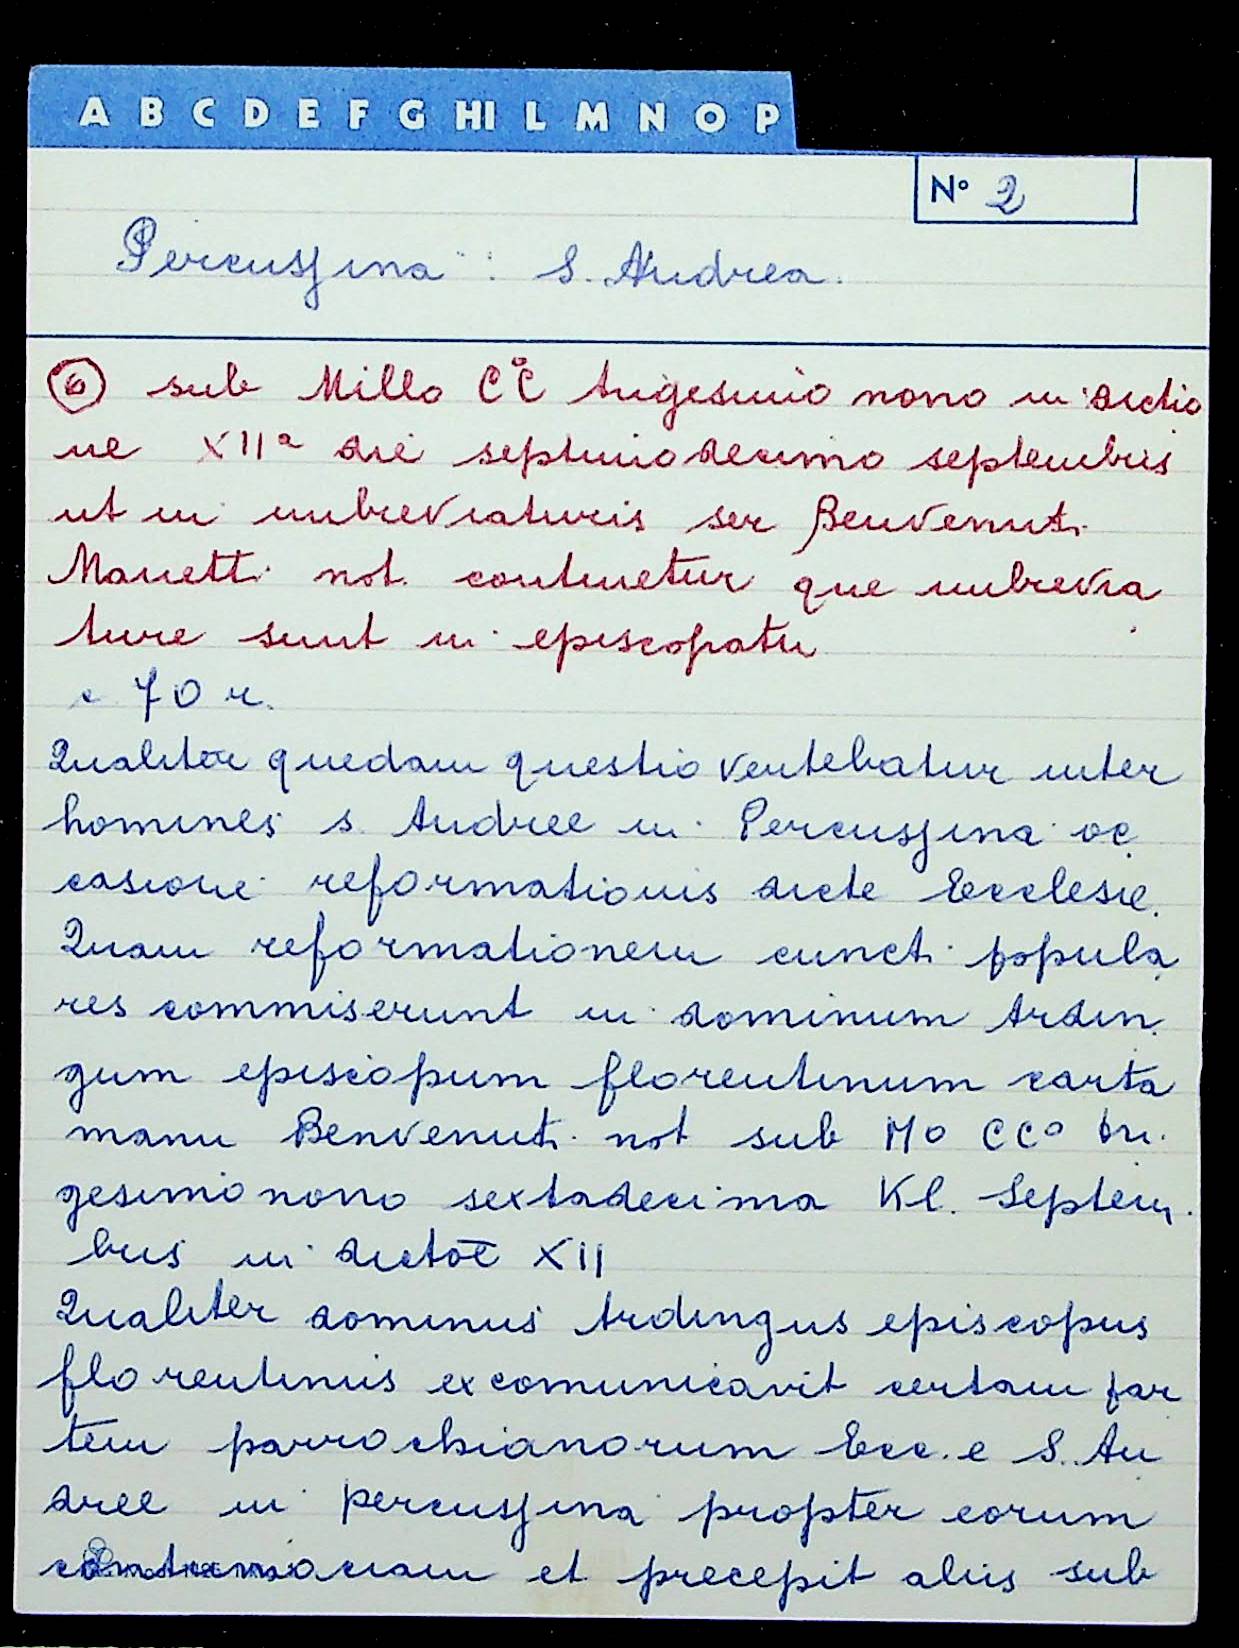 A B C D E F G HI L M N O P
Nº 2
Percussina : S. Andrea.
6 sub Millo CC° trigesimo nono in dictio
ne XIIa die septimodecimo septembris
ut in imbreviaturis ser Benvenuti
Manetti not. continetur que imbrevia
ture sunt in episcopatu
c 70 r.
Qualiter quedam questio vertebatur inter
homines s. Andree in Percussina oc
casione reformationis dicte Ecclesie.
Quam reformationem cuncti popula
res commiserunt in dominum Ardin
gum episcopum florentinum carta
manu Benvenuti not sub Mo CCo tri
gesimo nono sextadecima Kl. Septem
bris in dictoē XII
Qualiter dominus Ardingus episcopus
florentinus excomunicavit certam par
tem parrochianorum Ecc.e S. An
dree in percussina propter eorum
contumaciam et precepit aliis sub